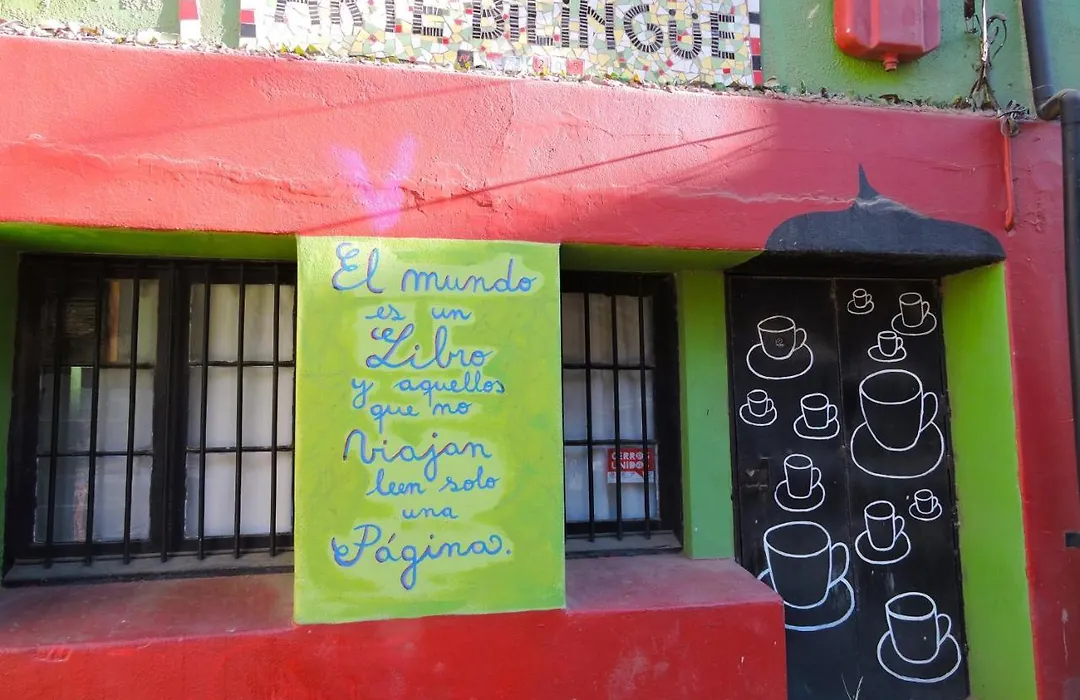 ARTE BILINGÜE
El mundo
es un
Libro
y aquellos
que no
Viajan
leen solo
una
Página.
CERROS
UNIDOS